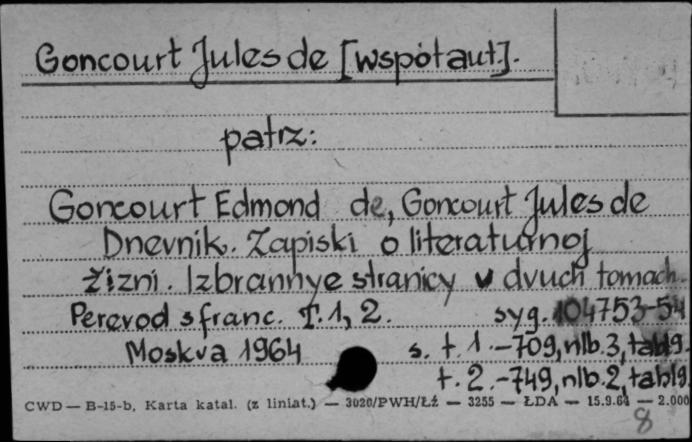 Goncourt Jules de [współaut.].
patrz:
Goncourt Edmond de, Goncourt Jules de
Dnevnik. Zapiski o literaturnoj
žizni. Izbrannye stranicy v dvuch tomach.
Perevod s franc. T. 1, 2. syg. 104753-54
Moskva 1964 s. t. 1.-709, nlb. 3, tabl 9.
t. 2.-749, nlb. 2, tabl 9.
CWD — B-15-b, Karta katal. (z liniat.) — 3020/PWH/Łź — 3255 — ŁDA — 15.9.64 — 2.000
8